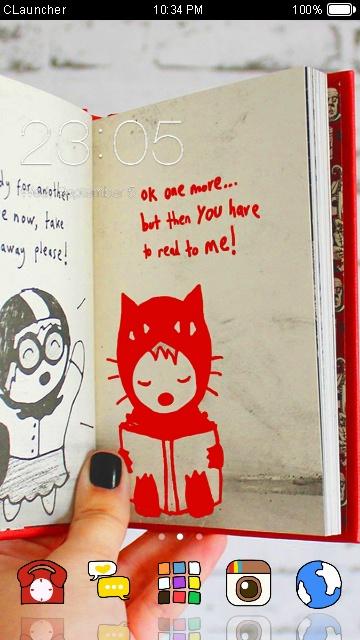 CLauncher 10:34 PM 100%
23:05
dy for another
e now, take
away please!
ok one more...
but then YOU have
to read to me!